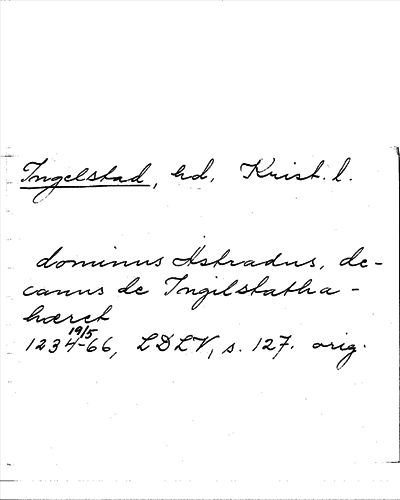 Ingelstad, hd, Krist. l.
dominus Astradus, de-
canus de Ingilstatha-
hæret
19/5
1234-66, LDLV, s. 127. orig.